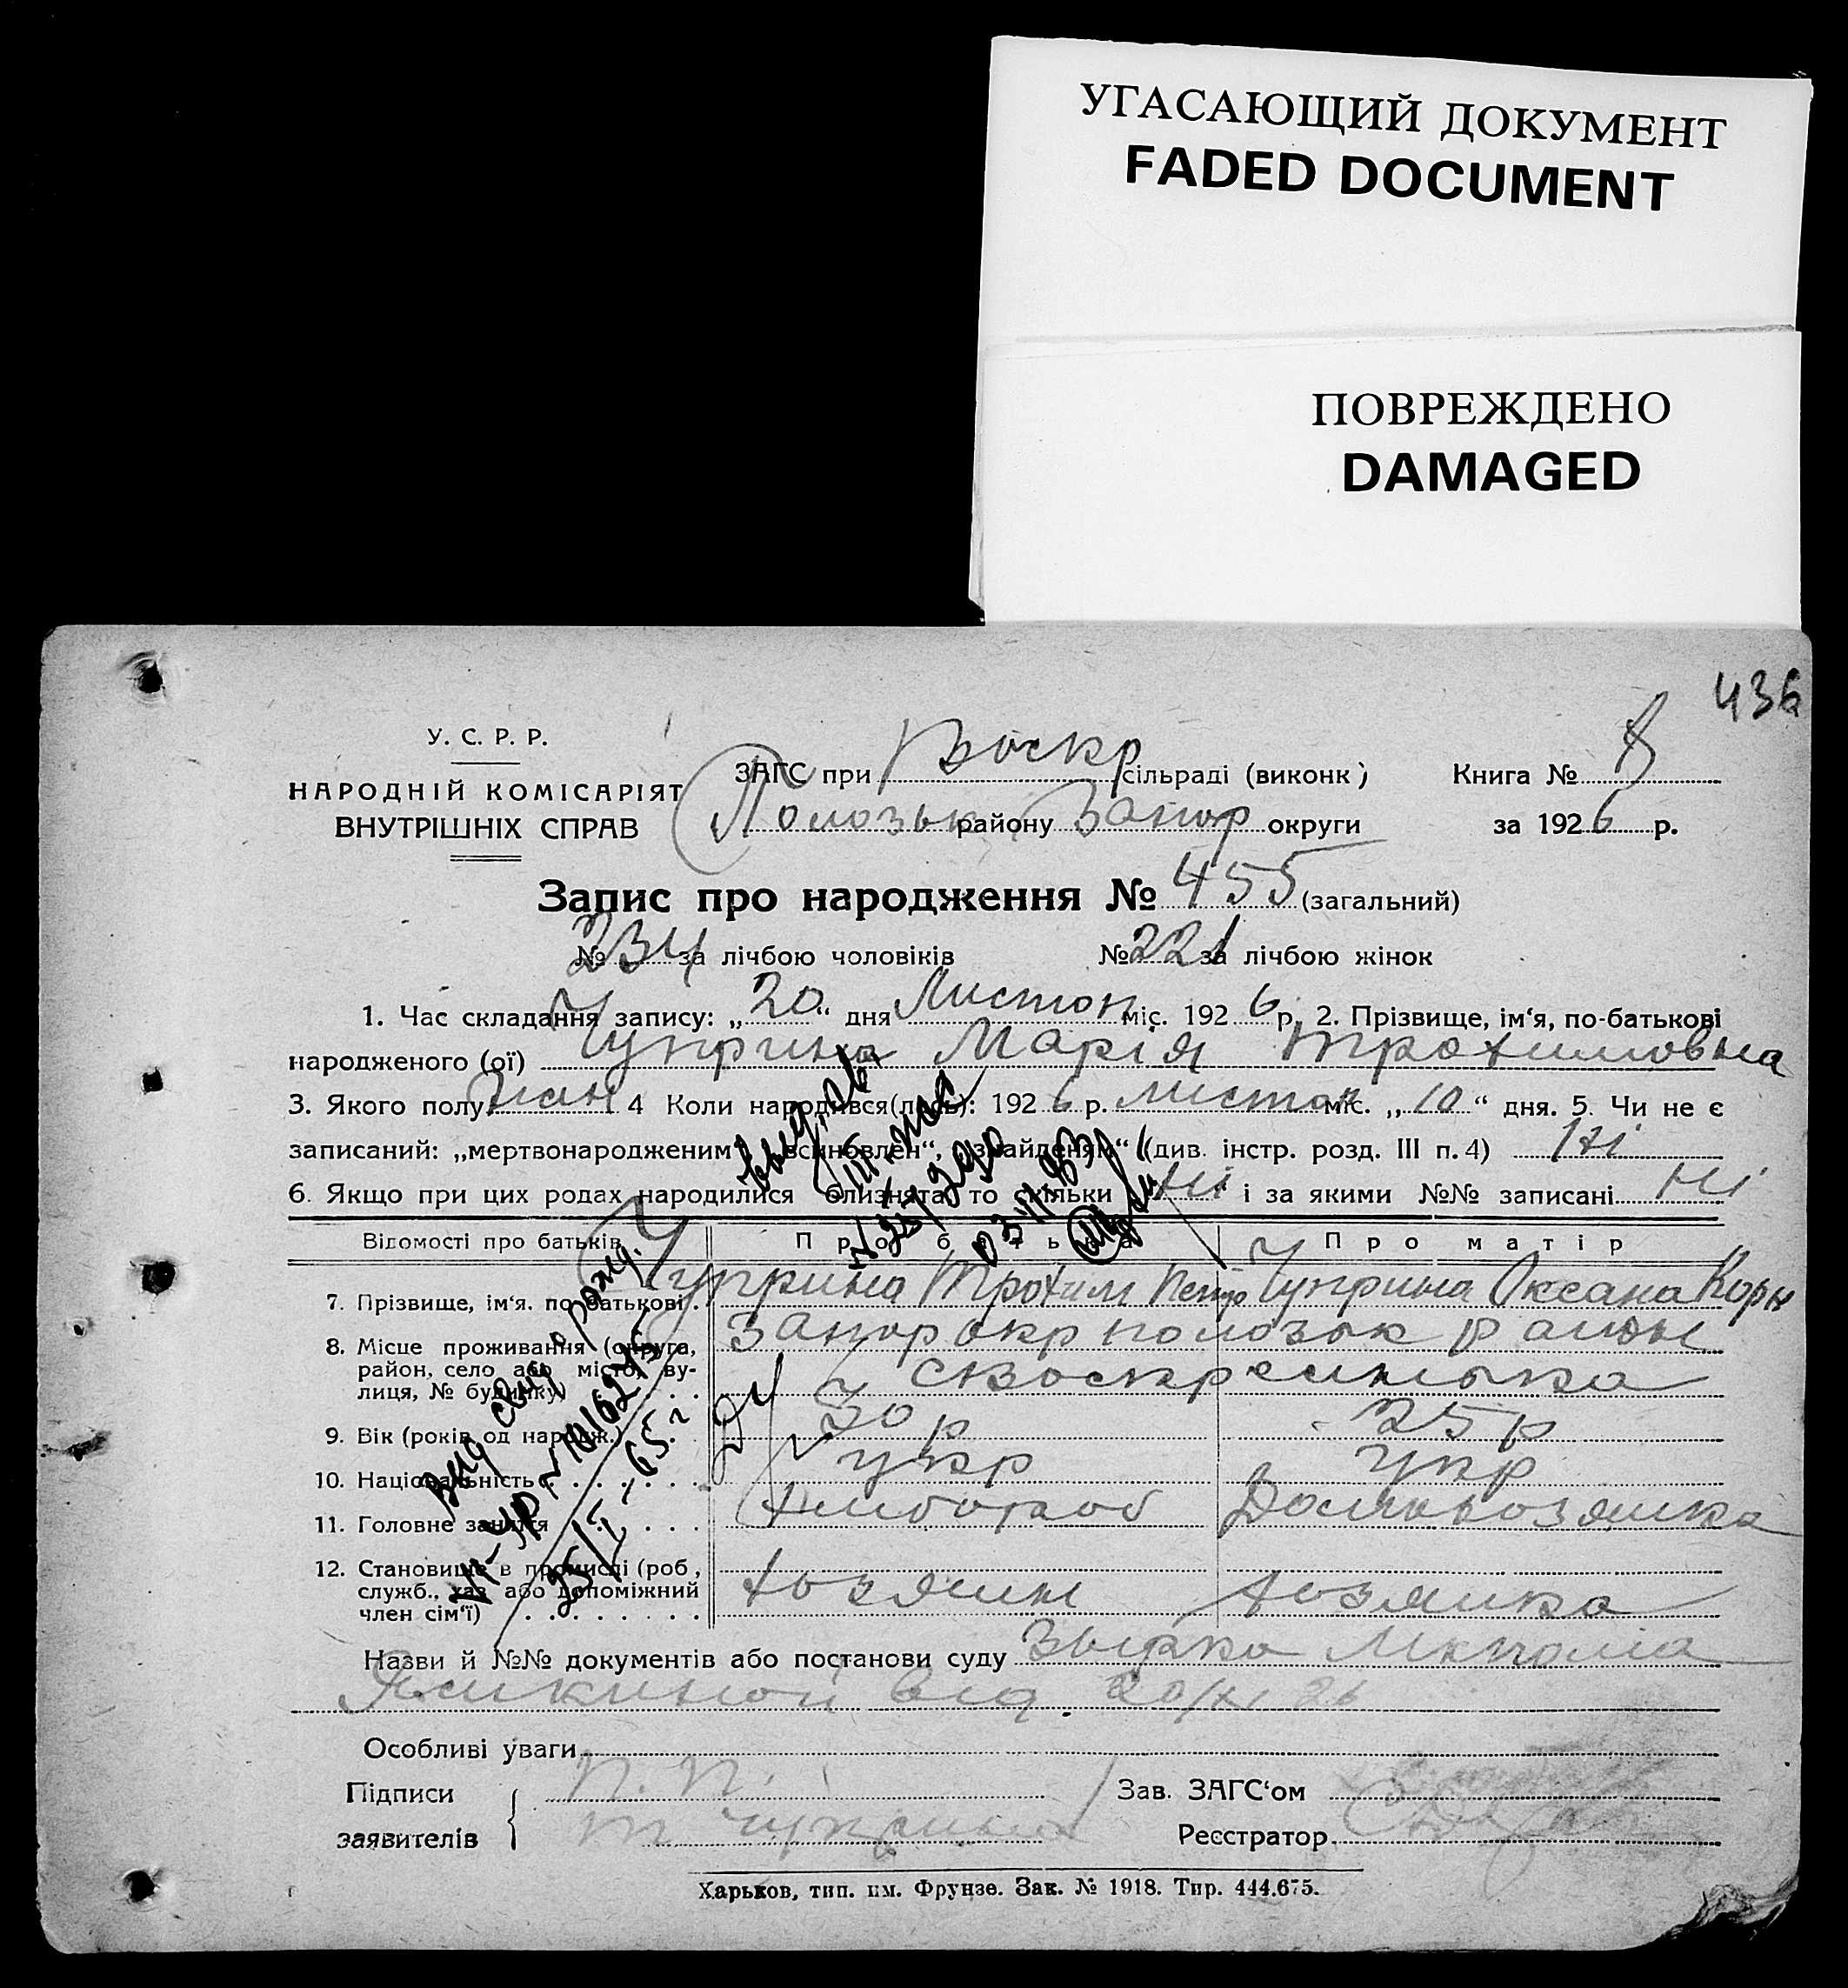 УГАСАЮЩИЙ ДОКУМЕНТ
FADED DOCUMENT
ПОВРЕЖДЕНО
DAMAGED
436
У. С. Р. Р.
НАРОДНІЙ КОМІСАРІЯТ
ВНУТРІШНІХ СПРАВ
ЗАГС при Воскр сільраді (виконк)
Полозьк району Запор округи
Книга №
за 1926 р.
Запис про народження № 455 (загальний)
№ 234 за лічбою чоловіків № 221 за лічбою жінок
1. Час складання запису: „20“ дня Листоп міс. 1926 р. 2. Прізвище, ім‘я, по-батькові
народженого (ої) Чуприна Марія Трохимовна
3. Якого полу жін 4 Коли народився(лась): 1926 р. листоп міс. „10“ дня. 5. Чи не є
записаний: „мертвонародженим“, „всиновлен“, „знайдений“ (див. інстр. розд. III п. 4) Ні
6. Якщо при цих родах народилися близнята, то скільки Ні і за якими №№ записані Ні
Відомості про батьків Про батька Про матір
7. Прізвище, ім‘я. по-батькові Чуприна Трохим Петро Чуприна Оксана Корн
8. Місце проживання (округа, район, село або місто, вулиця, № будинку) Запор окр полозьк район
с Воскресенька
9. Вік (років од народж.) 30 р 25 р
10. Національність укр укр
11. Головне заняття хлібороб Домохозяйка
12. Становище в промислі (роб, служб., хаз або допоміжний член сім‘ї) хозяин хозяйка
Назви й №№ документів або постанови суду
від 20/XI 26
Особливі уваги
Підписи заявителів П. П.
т Чуприна
Зав. ЗАГС‘ом
Реєстратор
Харьков, тип. им. Фрунзе. Зак. № 1918. Тир. 444.675.
Выд свид о рожд.
25/V - 65 г